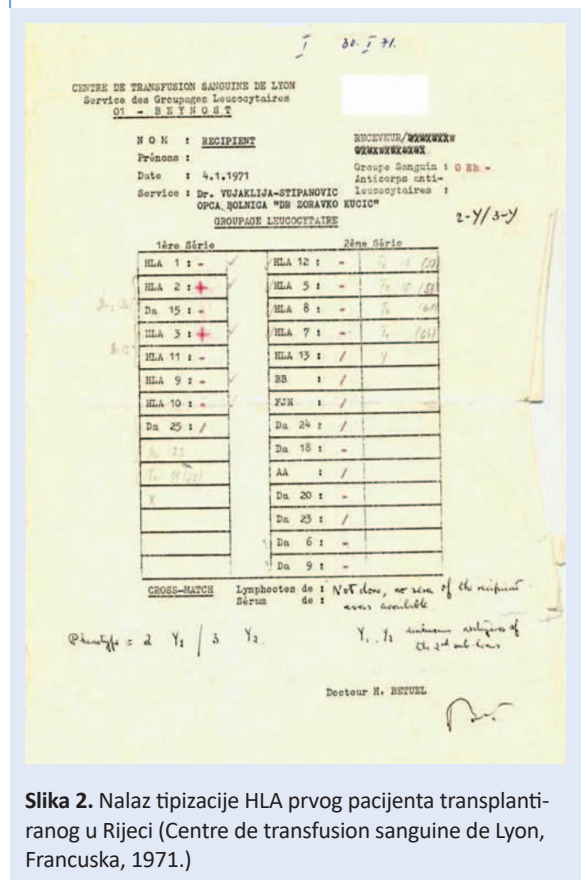 I 30. I 71.
CENTRE DE TRANSFUSION SANGUINE DE LYON
Service des Groupages Leucocytaires
01 - BEYNOST
NOM : RECIPIENT
RECEVEUR/
Prénoms :
Groupe Sanguin : O Rh -
Date : 4.1.1971
Anticorps anti-leucocytaires :
Service : Dr. VUJAKLIJA-STIPANOVIC
OPCA BOLNICA "DR ZORAVKO KUCIC"
2-Y/3-Y
GROUPAGE LEUCOCYTAIRE
1ère Série 2ème Série
HLA 1 : - HLA 12 : -
HLA 2 : + HLA 5 : -
Da 15 : - HLA 8 : -
HLA 3 : + HLA 7 : -
HLA 11 : - HLA 13 : / Y
HLA 9 : - BB : /
HLA 10 : - FJH : /
Da 25 : / Da 24 : /
Da 18 : -
AA : /
X Da 20 : -
Da 23 : /
Da 6 : -
Da 9 : -
CROSS-MATCH Lymphoctes de : Not done, no sera of the recipient
Sérum de : was available
Phenotype = 2 Y1 / 3 Y2. Y1, Y2 unknown antigens of
the 2d sub-locus
Docteur H. BETUEL
Slika 2. Nalaz tipizacije HLA prvog pacijenta transplanti-
ranog u Rijeci (Centre de transfusion sanguine de Lyon,
Francuska, 1971.)